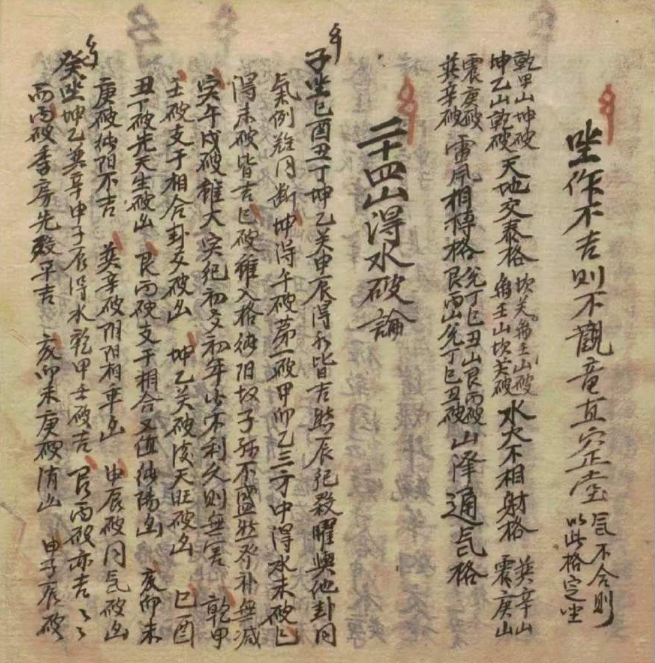 坐作不吉則不觀童直穴正堂氣不合則以此格定坐
乾甲山坤破坤乙山乾破天地交泰格坎癸離壬山破離壬山坎癸破水火不相射格巽辛山震庚山
震庚破巽辛破雷風相搏格兌丁巳丑山艮丙破艮丙山兌丁巳丑破山澤通氣格
二十四山得水破論
子坐巳酉丑丁坤乙癸申辰得水皆吉然辰犯殺曜與他卦同
氣例難同斷坤得午破第一破甲卯乙三方中得水未破巳
得未破皆吉巳破雖入格純陽故子孫不盛然發補無減
寅午戌破雖大害犯初爻初年少不利久則無害 乾甲
壬破支干相合卦爻破凶 坤乙癸破後天旺破凶 巳酉
丑丁破先天生破凶 艮丙破支干相合又值純陽凶 亥卯未
庚破純陽不吉 巽辛破陰陽相乖凶 申辰破同氣破凶
癸坐坤乙巽辛申子辰得水乾甲壬破吉 艮丙破亦吉
而丙破季房先發早吉 亥卯未庚破消凶 申子辰破